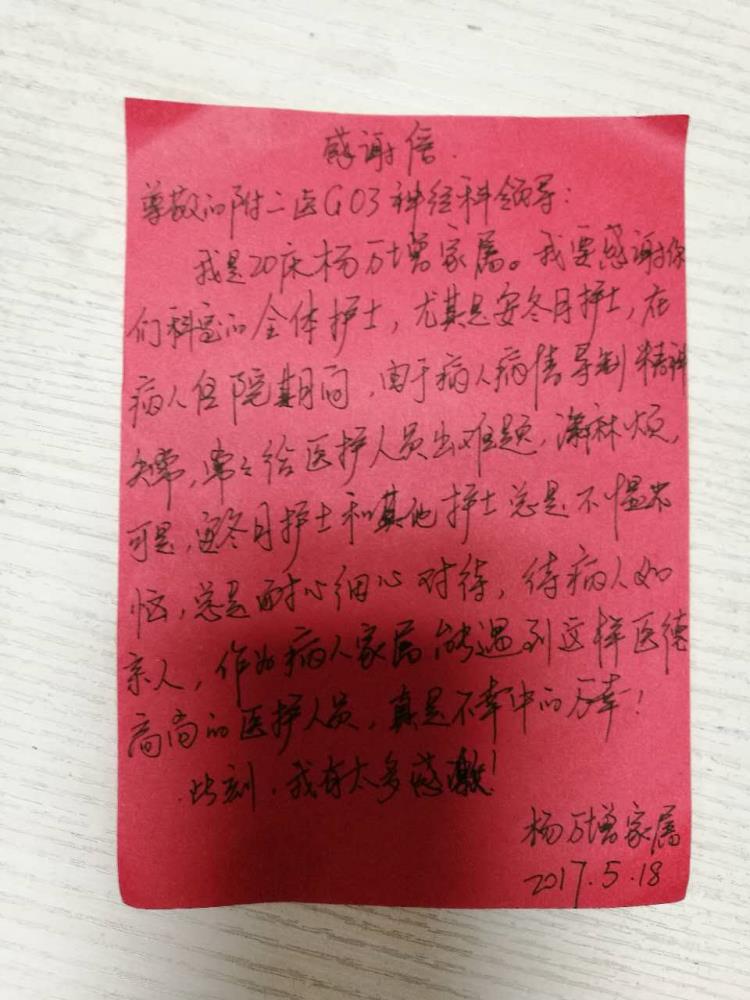 感谢信.
尊敬的附二医G03神经科领导:
我是20床杨万增家属。我要感谢你
们科室的全体护士,尤其是安冬月护士,在
病人住院期间,由于病人病情导制精神
失常,常々给医护人员出难题,添麻烦,
可是,安冬月护士和其他护士总是不愠不
恼,总是耐心细心对待,待病人如
亲人,作为病人家属能遇到这样医德
高尚的医护人员,真是不幸中的万幸!
此刻,我有太多感激!
杨万增家属
2017.5.18